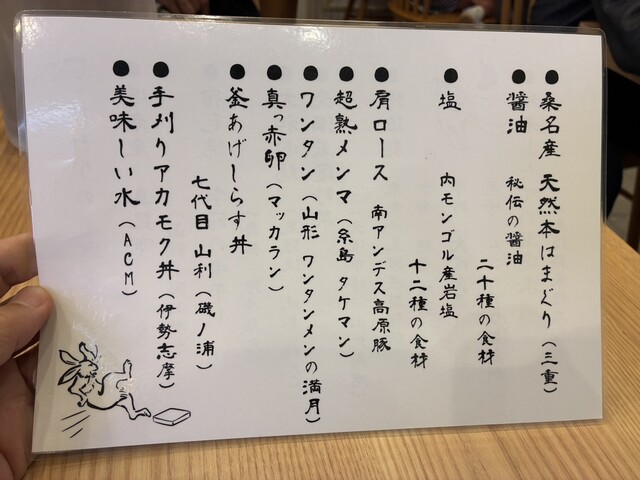 ●桑名産 天然本はまぐり(三重)
●醤油 秘伝の醤油
二十種の食材
●塩 内モンゴル産岩塩
十二種の食材
●肩ロース 南アンデス高原豚
●超熟メンマ(糸島 タケマン)
●ワンタン(山形 ワンタンメンの満月)
●真っ赤卵(マッカラン)
●釜あげしらす丼
七代目 山利(磯ノ浦)
●手刈りアカモク丼(伊勢志摩)
●美味しい水(ACM)